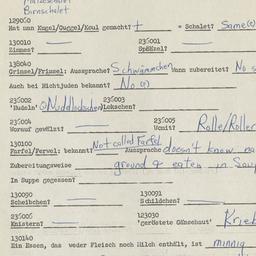 Birnschalet
129060
Hat man Kugel/Guggel/Koul gemacht? + = Schalet? Same(e)
130010 236001
Zimmes? Spätzel?
138040
Grinsel/Frimsel: Aussprache? Schwämmchen Wann zubereitet? No s
Auch bei Nichtjuden bekannt? No (?)
236002 236003
'Nudeln' Lokschen?
236004 236005
Worauf gewälzt? Womit? Rolle/Roller
130100 Not called Farfel
Farfel/Fervel: bekannt? Aussprache doesn't know na
Zubereitungsweise ground & eaten in Soup
In Suppe gegessen?
130090 130091
Scheibchen? Schildchen?
236006 123030
Knistern? 'geröstete Gänsehaut' Krieb
130140
Ein Essen, das weder Fleisch noch Milch enthält, ist minnig